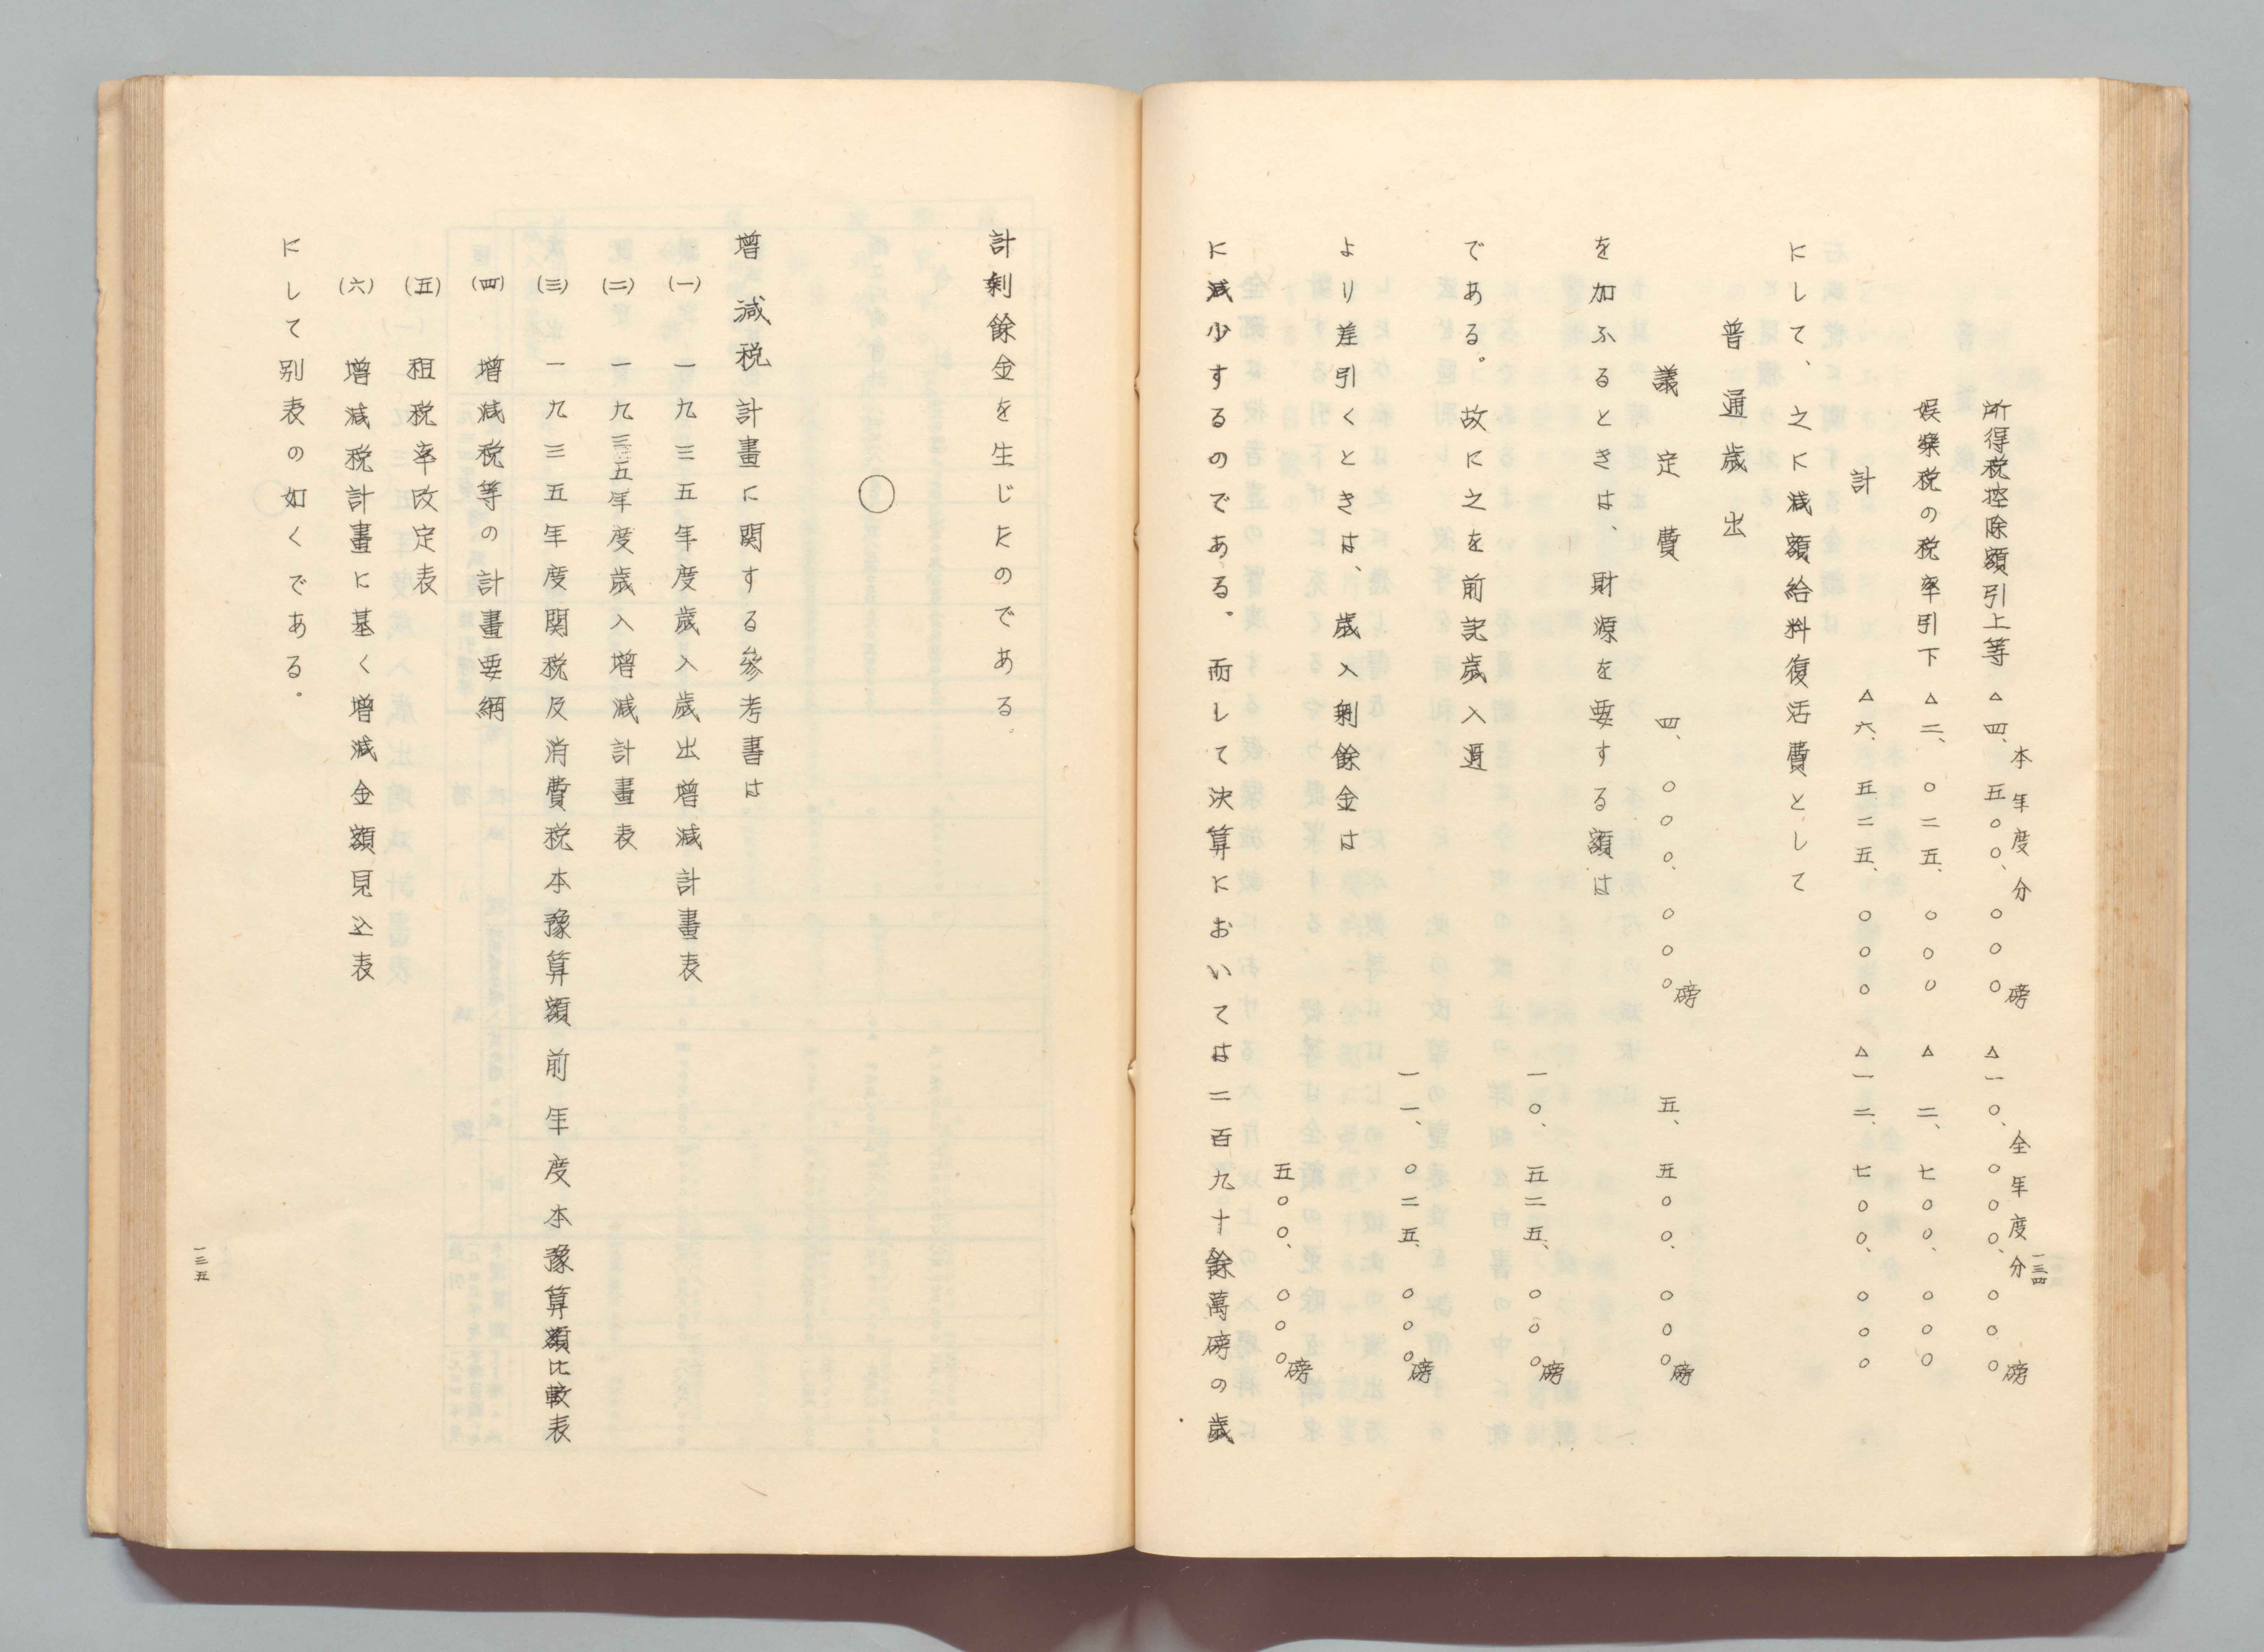 本年度分　全年度分
所得税控除額引上等　△四、五〇〇、〇〇〇磅　△一〇、〇〇〇、〇〇〇磅
娯樂税の税率引下　△二、〇二五、〇〇〇　△二、七〇〇、〇〇〇
計　△六、五二五、〇〇〇　△一二、七〇〇、〇〇〇
にして、之に減額給料復活費として
普通歳出
議定費　四、〇〇〇、〇〇〇磅　五、五〇〇、〇〇〇磅
を加ふるときは、財源を要する額は
一〇、五二五、〇〇〇磅
である。故に之を前記歳入過
一一、〇二五、〇〇〇磅
より差引くときは、歳入剰餘金は
五〇〇、〇〇〇磅
に減少するのである。而して決算においては二百九十餘萬磅の歳
一三四
計剰餘金を生じたのである。
〇
増減税計畫に関する參考書は
(一)　一九三五年度歳入歳出増減計畫表
(二)　一九三五年度歳入増減計畫表
(三)　一九三五年度関税及消費税本豫算額前年度本豫算額比較表
(四)　増減税等の計畫要綱
(五)　租税率改定表
(六)　増減税計畫に基く増減金額見込表
にして別表の如くである。
一三五